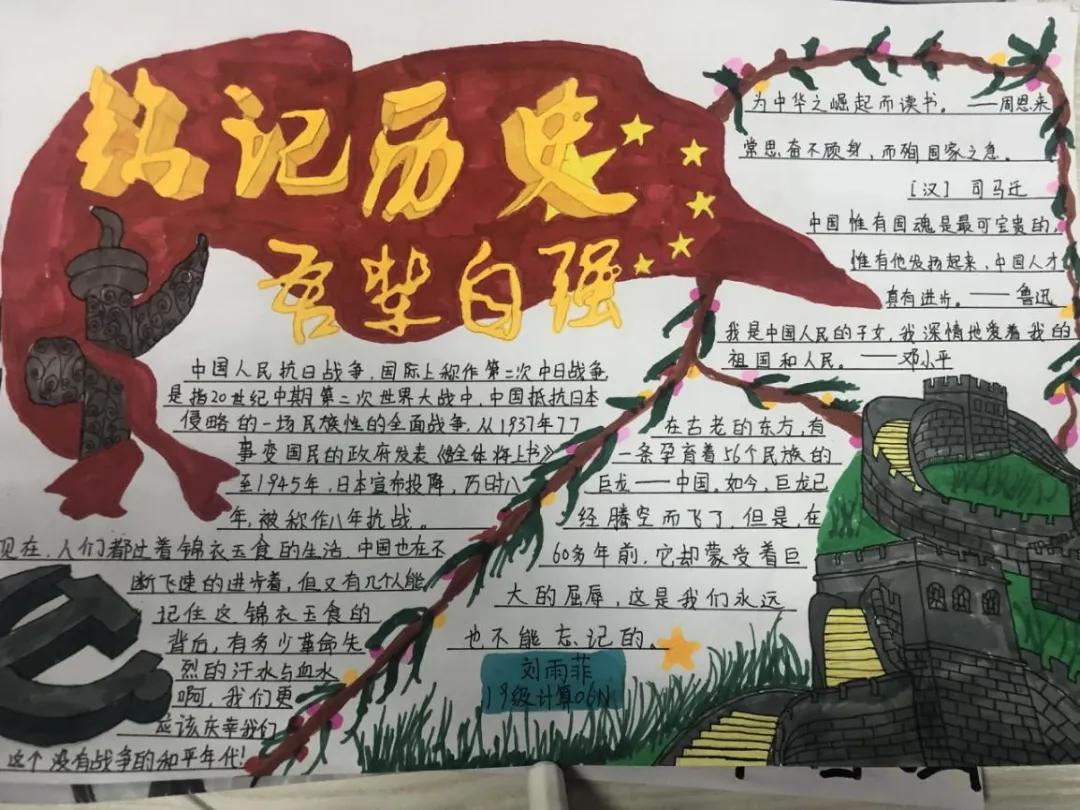 铭记历史
吾辈自强
为中华之崛起而读书。——周恩来
常思奋不顾身,而殉国家之急。
[汉] 司马迁
中国惟有国魂是最可宝贵的,
惟有他发扬起来,中国人才
真有进步。——鲁迅
我是中国人民的子女,我深情地爱着我的
祖国和人民。——邓小平
中国人民抗日战争,国际上称作第二次中日战争
是指20世纪中期第二次世界大战中,中国抵抗日本
侵略的一场民族性的全面战争,从1937年77
事变国民的政府发表《全体将上书》
至1945年,日本宣布投降,历时八
年,被称作八年抗战。
现在,人们都过着锦衣玉食的生活,中国也在不
断飞速的进步着,但又有几个人能
记住这锦衣玉食的
背后,有多少革命先
烈的汗水与血水
啊,我们更
应该庆幸我们
这个没有战争的和平年代!
在古老的东方,有
一条孕育着56个民族的
巨龙——中国。如今,巨龙已
经腾空而飞了,但是,在
60多年前,它却蒙受着巨
大的屈辱,这是我们永远
也不能忘记的。
刘雨菲
19级计算06N